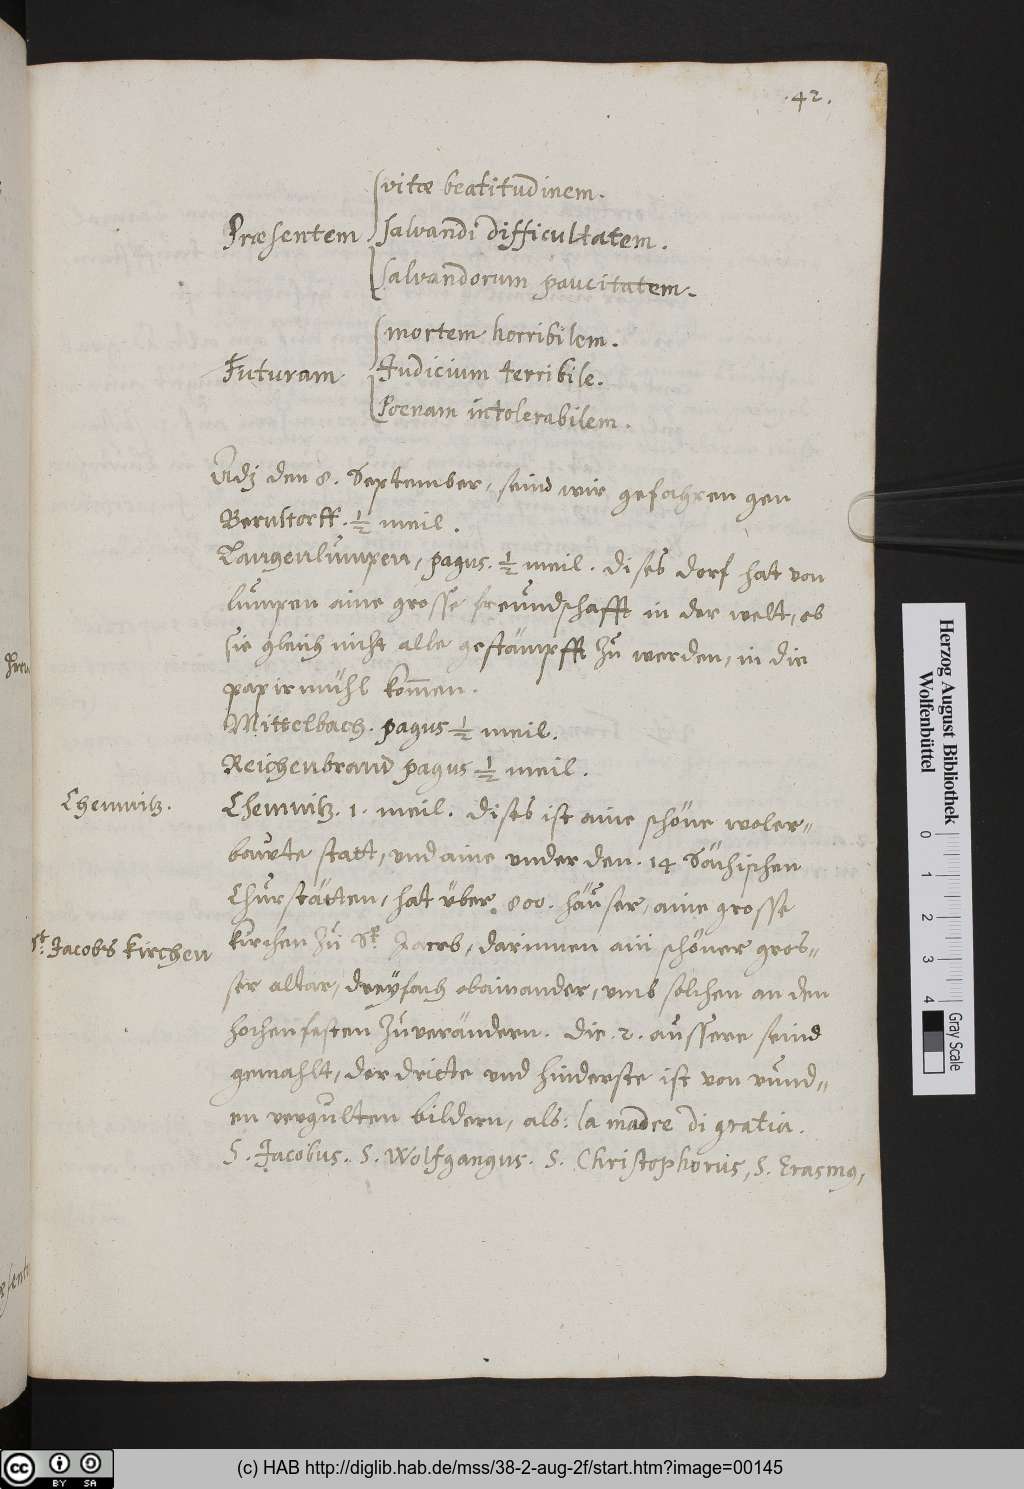 .42.
vitæ beatitudinem.
Præsentem salvandi difficultatem.
salvandorum paucitatem.
mortem horribilem.
Futuram Judicium terribile.
Poenam intolerabilem.
Adj den 8. September, seind wir gefahren gen
Bernstorff. ½ meil.
Langenlumpen, pagus. ½ meil. dises dorf hat von
lumpen aine grosse freundschafft in der welt, ob
sie gleich nicht alle gestämpfft zu werden, in die
papirmühl kom̄en.
Mittelbach. pagus ½ meil.
Reichenbrand pagus ½ meil.
Chemnitz.
Chemnitz. 1. meil. dises ist aine schöne woler-
bawte statt, und aine under den. 14 Sächischen
Churstätten, hat über. 800. häuser, aine grosse
St. Jacobs kirchen
kirchen zu St. Jacob, darinnen ain schöner gros-
ser altar, dreyfach obainander, umb solchen an den
hochen festen zuverändern. die. 2. aussere seind
gemahlt, der dritte und hinderste ist von rund-
en vergulten bildern, als: la madre di gratia.
S. Jacobus. S. Wolfgangus. S. Christophorus, S. Erasmꝰ,
Herzog August Bibliothek
Wolfenbüttel
0 1 2 3 4
Gray Scale
CC BY SA
(c) HAB http://diglib.hab.de/mss/38-2-aug-2f/start.htm?image=00145